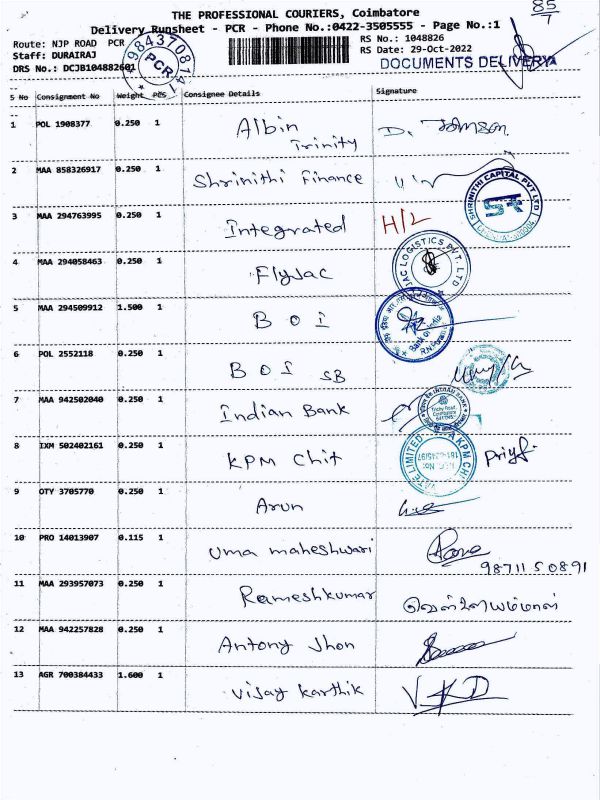 THE PROFESSIONAL COURIERS, Coimbatore
85/1
Delivery Runsheet - PCR - Phone No.:0422-3505555 - Page No.:1
Route: NJP ROAD PCR
RS No.: 1048826
Staff: DURAIRAJ
RS Date: 29-Oct-2022
DRS No.: DCJB104882601
PCR
DOCUMENTS DELIVERY
S No Consignment No Weight PCS Consignee Details Signature
1 POL 1908377 0.250 1 Albin Trinity D. Johnson
2 MAA 858326917 0.250 1 Shrinithi Finance
SHRINITHI CAPITAL PVT LTD
3 MAA 294763995 0.250 1 Integrated H/2
4 MAA 294058463 0.250 1 FlyJac
JAC LOGISTICS PVT. LTD
5 MAA 294509912 1.500 1 B O I
Bank of India
6 POL 2552118 0.250 1 B O I SB
7 MAA 942502040 0.250 1 Indian Bank
INDIAN BANK
8 IXM 502402161 0.250 1 KPM Chit Priya
KPM CHIT
9 OTY 3705770 0.250 1 Arun
10 PRO 14013907 0.115 1 Uma maheshwari
9871150891
11 MAA 293957073 0.250 1 Rameshkumar வெள்ளையம்மாள்
12 MAA 942257828 0.250 1 Antony Jhon
13 AGR 700384433 1.600 1 Vijay Karthik VKD